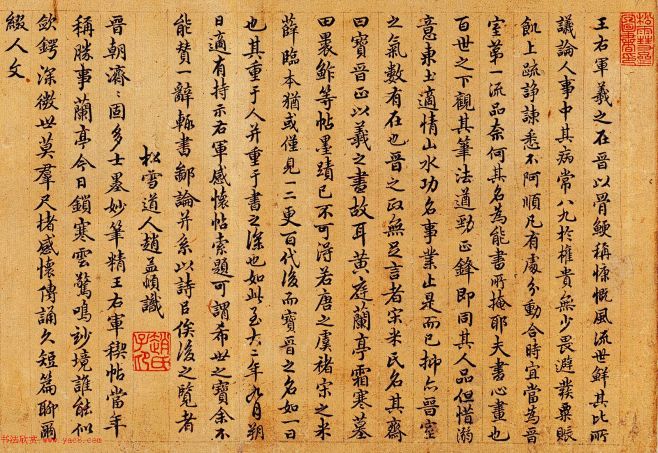 王右軍羲之在晉以骨鯁稱慷慨風流世鮮其比所
議論人事中其病常八九於權貴無少畏避發粟賑
飢上疏諍諫悉不阿順凡有處分動合時宜當為晉
室第一流品奈何其名為能書所掩耶夫書心畫也
百世之下觀其筆法遒勁正鋒即同其人品但惜溺
意東土適情山水功名事業止是而已抑亦晉室
之氣數有在也晉之政無足言者宋米氏名其齋
曰寶晉正以羲之書故耳黃庭蘭亭霜寒墓
田裹鮓等帖墨蹟已不可得若唐之虞褚宋之米
薛臨本猶或僅見一二更百代後而寶晉之名如一日
也其重于人并重于書之深也如此至大二年九月朔
日適有持示右軍感懷帖索題可謂希世之寶余不
能贊一辭輙書鄙論并系以詩以俟後之覽者
松雪道人趙孟頫識
趙氏子昂
晉朝濟〻固多士墨妙筆精王右軍禊帖當年
稱勝事蘭亭今日鎖寒雲驚鳴妙境誰能似
斂鍔深微世莫羣尺楮感懷傳誦久短篇聊爾
綴人文
书法欣赏 www.yac8.com